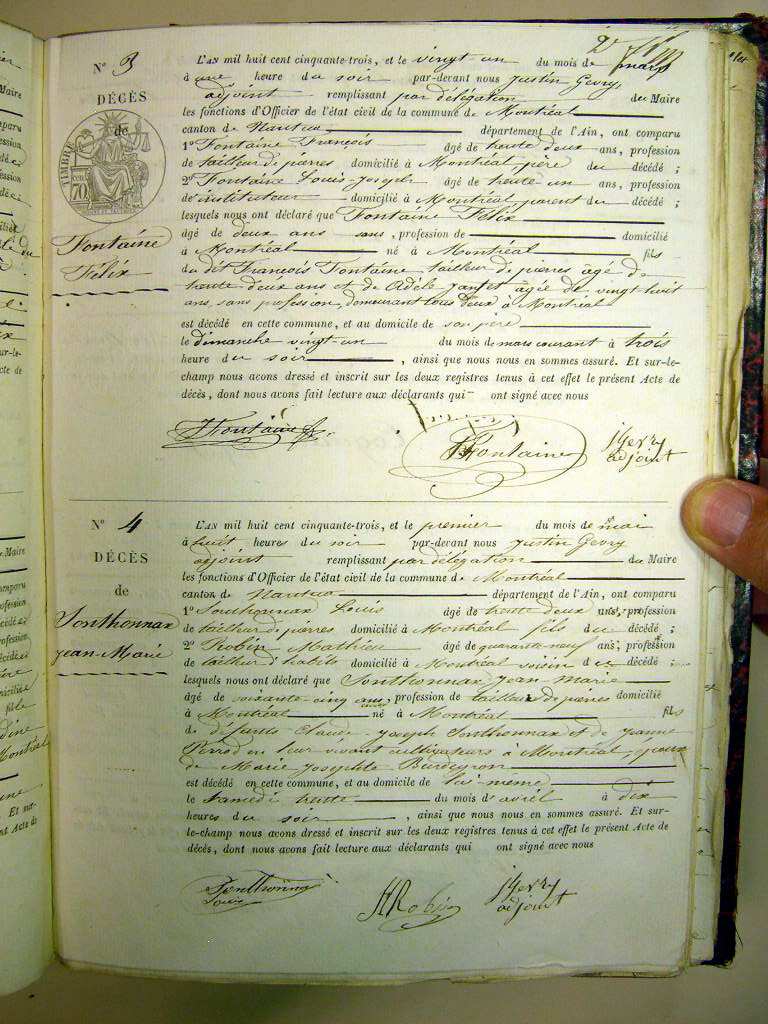 N° 3
DÉCÈS
de
TIMBRE
70
Fontaine
Félix
L'AN mil huit cent cinquante-trois, et le vingt un du mois de mars
à une heure du soir par-devant nous Justin Gevry
adjoint remplissant par délégation du Maire
les fonctions d'Officier de l'état civil de la commune de Montréal
canton de Nantua département de l'Ain, ont comparu
1° Fontaine François âgé de trente deux ans, profession
de tailleur de pierres domicilié à Montréal père du décédé ;
2° Fontaine Louis-Joseph âgé de trente un ans, profession
de instituteur domicilié à Montréal parent du décédé ;
lesquels nous ont déclaré que Fontaine Félix
âgé de deux ans sans, profession de domicilié
à Montréal né à Montréal fils
du dit François Fontaine, tailleur de pierres âgé de
trente deux ans et de Adèle âgée de vingt huit
ans, sans profession, demeurant tous deux à Montréal
est décédé en cette commune, et au domicile de son père
le dimanche vingt-un du mois de mars courant à trois
heure du soir, ainsi que nous nous en sommes assuré. Et sur-le-
champ nous avons dressé et inscrit sur les deux registres tenus à cet effet le présent Acte de
décès, dont nous avons fait lecture aux déclarants qui ont signé avec nous
Fontaine Fontaine Gevry
adjoint
N° 4
DÉCÈS
de
Sonthonnax
Jean-Marie
L'AN mil huit cent cinquante-trois, et le premier du mois de mai
à huit heures du soir par-devant nous Justin Gevry
adjoint remplissant par délégation du Maire
les fonctions d'Officier de l'état civil de la commune de Montréal
canton de Nantua département de l'Ain, ont comparu
1° Sonthonnax Louis âgé de trente deux ans, profession
de tailleur de pierres domicilié à Montréal fils du décédé ;
2° Robin Mathieu âgé de quarante neuf ans, profession
de tailleur d'habits domicilié à Montréal voisin du décédé ;
lesquels nous ont déclaré que Sonthonnax Jean marie
âgé de soixante-cinq ans, profession de tailleur de pierres domicilié
à Montréal né à Montréal fils
de défunts Claude-Joseph Sonthonnax et de Jeanne
Perrod en leur vivant cultivateurs à Montréal, époux
de Marie Josephte
est décédé en cette commune, et au domicile de lui-même
le Samedi trente du mois d'avril à dix
heures du soir, ainsi que nous nous en sommes assuré. Et sur-
le-champ nous avons dressé et inscrit sur les deux registres tenus à cet effet le présent Acte de
décès, dont nous avons fait lecture aux déclarants qui ont signé avec nous
Sonthonnax
Louis
Robin
Gevry
adjoint